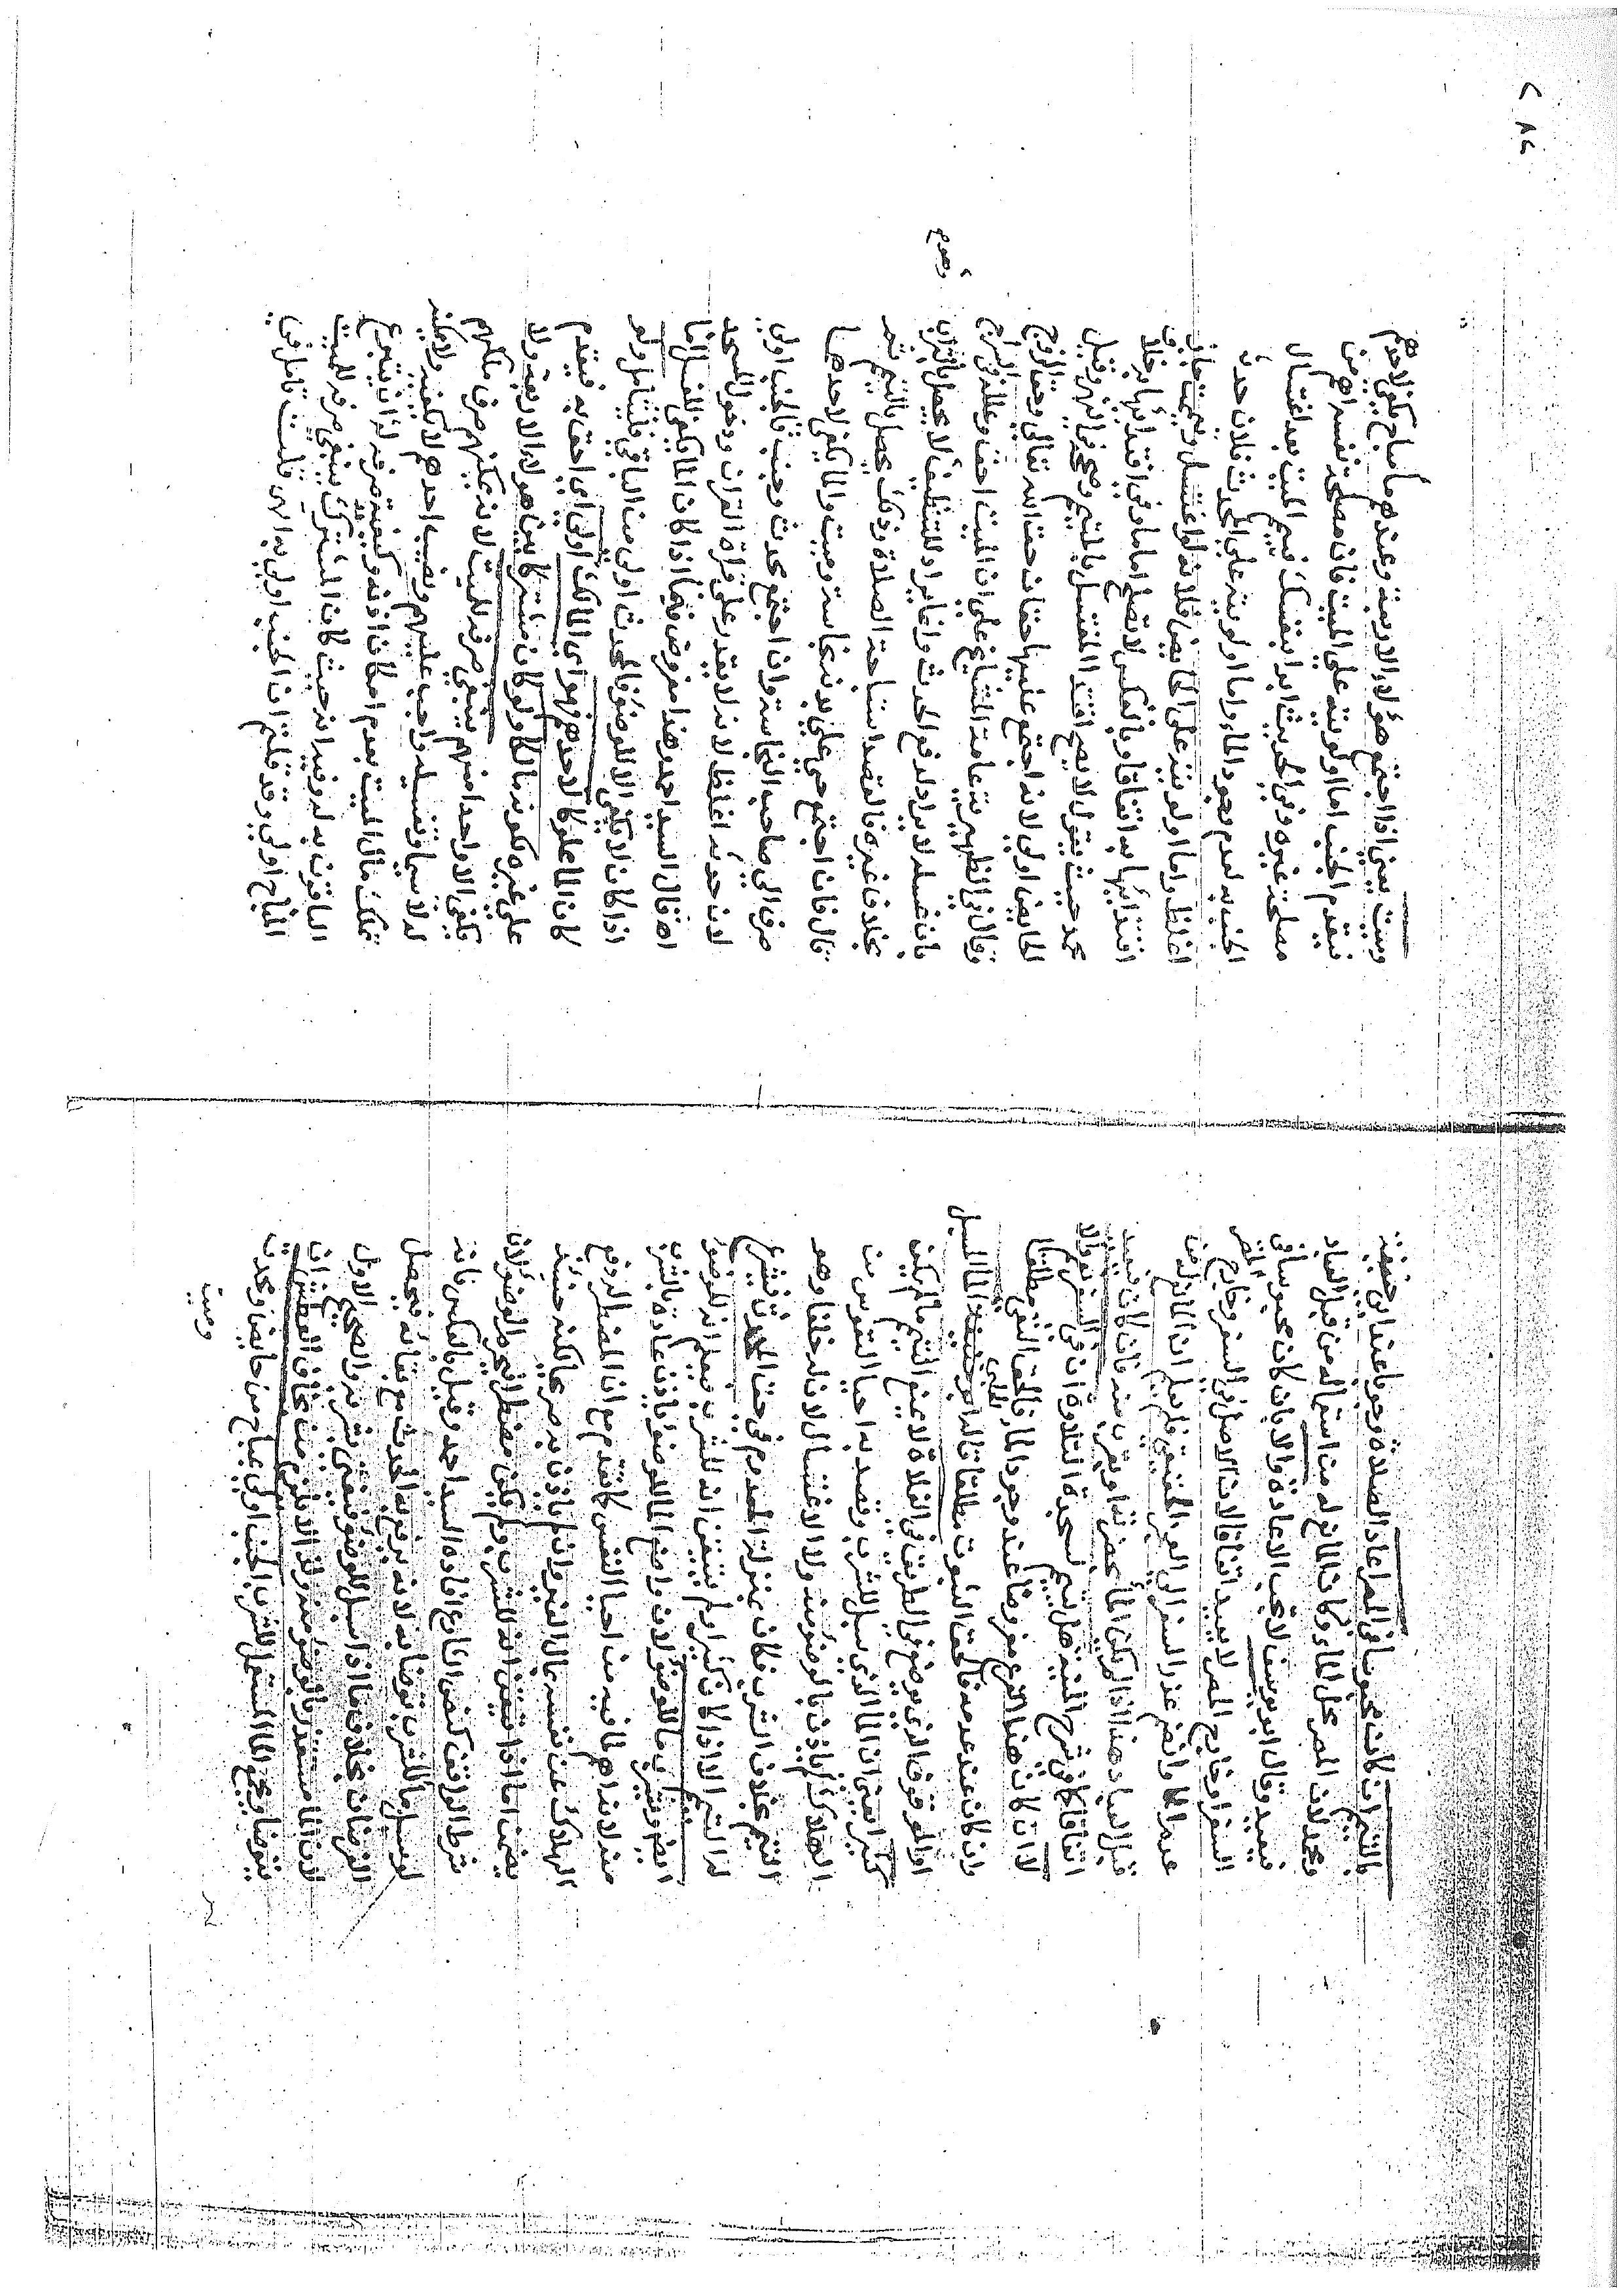 بالتيمم ان كان محبوسا في المصر اعاد الصلاة وجوبا عند ابي حنيفة
ومحمد لان المصر محل الماء وكان المانع له من استعماله من قبل العباد
فيعيد وقال ابو يوسف لا تجب الاعادة والا بان كان محبوسا في
السفر او خارج المصر لا يعيد اتفاقا لان الاصل في السفر وخارج المصر
عدم الماء وانضم عذر السفر الى العذر الحقيقي فلم يعلم ان المانع من
قبل العباد هذا اذا لم يكن الماء بحضرته او بقرب منه فان كان فيعيد
اتفاقا كما في شرح المنية هل تيمم لسجدة التلاوة ان في السفر نعم والا
لا ان كان هذا الفرع مفروضا عند وجود الماء فالحق النفي مطلقا
وان كان عند عدمه فالحق الثبوت مطلقا قاله ابو حنيفة الماء المسبل
او الموقوف الذي يوضع في الطرقات في الفلاة لا يمنع التيمم ما لم يكن
كثيرا يعني ان الماء الذي يسبل للشرب ويقصد به احياء النفوس من
الهلاك لم ياذن بالوضوء منه ولا الاغتسال لان له خلفا وهو
التيمم بخلاف الشرب فكان بمنزلة المعدوم في حق المحدث فيشرع
له التيمم الا اذا كان كثيرا ولم يتيقن انه للشرب فيعلم انه للوضوء
ايضا ويشرب ما للوضوء لان واضع الماء للوضوء ياذن عادة بالشرب
منه لانه اهم لما فيه من احياء النفس كما تقدم مع ان المضطر لدفع
الهلاك عن نفسه بمال الغير وان لم ياذن به صريحا لكنه حينئذ
يضمن اما اذا تيقن انه للشرب ولم يكن مضطرا لم يجز الوضوء لان
شرط الواقف كنص الشارع افاده السيد احمد وقيل بالعكس فانه
لو سبل ماء للشرب يتوضا به لانه يرفع به الحدث مع بقائه فيحصل
الغرضان بخلاف ما اذا سبل للوضوء فينبغي بشربه والصحيح الاول
لان الماء مستقذر بالوضوء منه ولانه الاولى من خاف العطش ان
يتوضا ويجمع الماء المستعمل للشرب الجنب اولى بمباح من حايض او محدث
وميت
وميت يعني اذا اجتمع هؤلاء الاربعة وعندهم ماء مباح يكفي لاحدهم
فيقدم الجنب اما اولويته على الميت فلان مصلحة نفسه اهم من
مصلحة غيره وفي الحديث ابدا بنفسك فييمم الميت بعد اغتسال
الجنب به لعدم وجود الماء واما اولويته على المحدث فلان حدثه
اغلظ واما اولويته على الحايض فلانه لو اغتسل وتيممت جاز
اقتداؤها به اتفاقا وبالعكس لا تصلح اماما وفي اقتدائها به خلاف
محمد حيث يقول لا يصح اقتداء المغتسل بالمتيمم وصححه في النهر وقيل
الحايض اولى لانه اجتمع عليها حقان حق الله تعالى وحق الزوج
وقال في الظهيرية عامة المشايخ على ان الميت احق وعلله في السراج
بان غسله لا يراد لرفع الحدث وانما يراد للتنظيف ولا يحصل بالتراب
بخلاف غيره فالقصد استباحة الصلاة وذلك يحصل بالتيمم ثم
قال فان اجتمع حي على بدنه نجاسة وميت والماء يكفي لاحدهما
صرف الى صاحب النجاسة وان اجتمع محدث وجنب فالجنب اولى
لان حدثه اغلظ لانه لا يقدر على قراءة القران ودخول المسجد
اهـ قال السيد احمد وهذا مفروض فيما اذا كان الماء يكفي للغسل اما
اذا كان لا يكفي الا للوضوء فالمحدث اولى من الباقي فليتامل ولو
كان الماء مملوكا لاحدهم فهو اي المالك اولى اي احق به فيقدم
على غيره بكونه مالكا ولو كان مشتركا بين هؤلاء الاربعة ولا
يكفي الا واحدا منهم ينبغي صرفه للميت لانه يمكنهم صرف ملكهم
له لا سيما وتغسيله واجب عليهم ونصيب احدهم لا يكفيه ولا يمكنه
تملك مال الميت بعدم امكان اذنه وكيفية صرفه له ان يتبرع
الباقون به له وفيه انه حيث كان المشترك ينبغي صرفه للميت
المباح اولى وقد قلتم ان الجنب اولى به اهـ حلبي قلت تامل في
وهو م